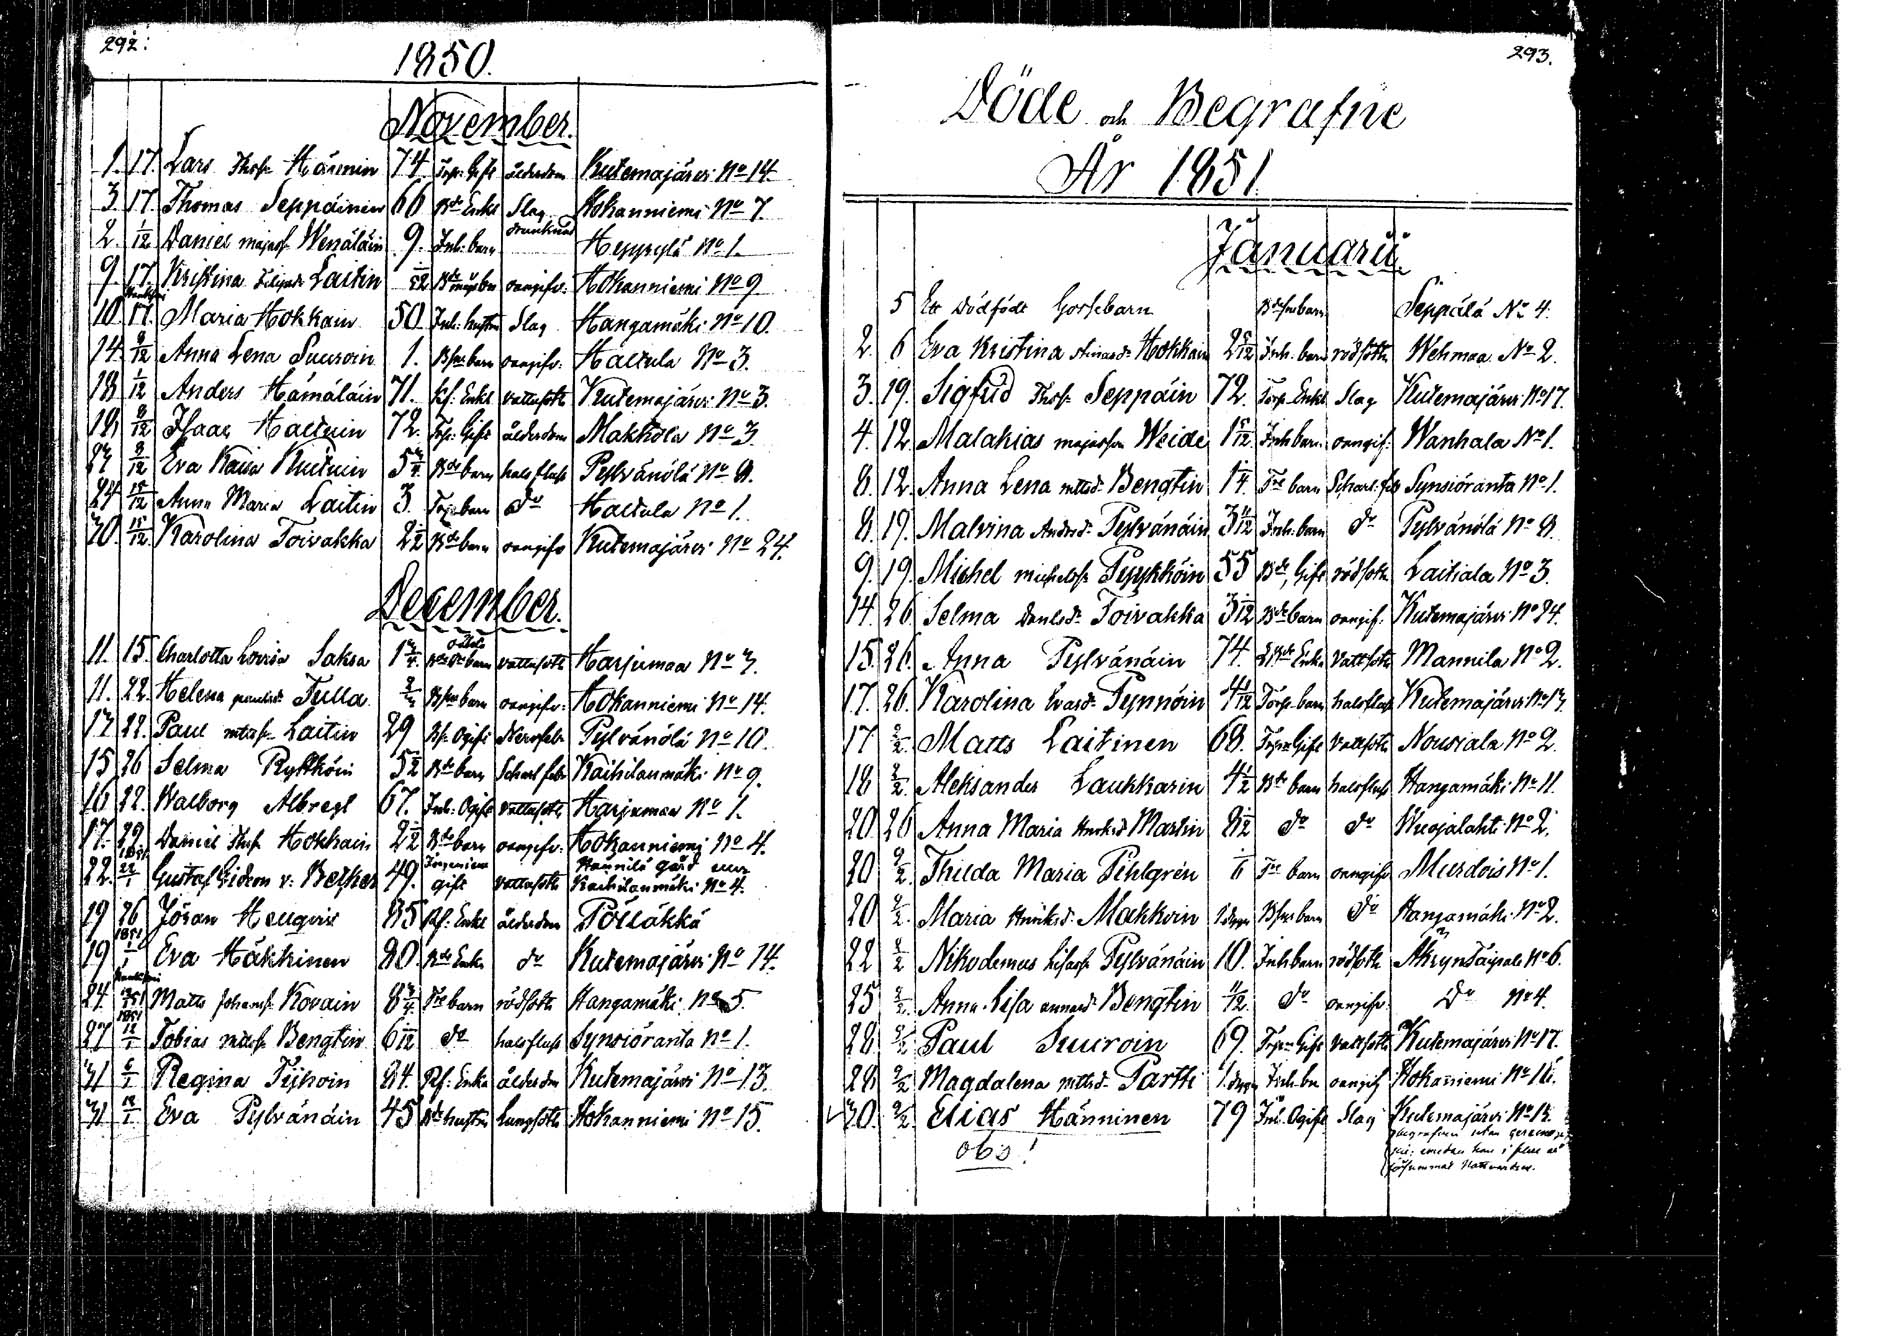 292.
1850.
November.
1. 17. Lars Thoss. Hännin 74. Torp. Gift ålderdom Kutemajärvi No 14.
3. 17. Thomas Seppäinen 66 Bde Enkl Slag Hokanniemi No 7.
2. 1/12 Daniel majass. Wenäläin 9. Inh: barn drunknad Heppylä No 1.
9. 17. Kristina Filipsdr Laitin oangifv: Hokanniemi No 9
10. 17. Maria Hokkain 50. Inh: hustru Slag Hangamäki No 10.
14. 8/12 Anna Lena Suuroin 1. Bfn barn oangifv: Haltula No 3.
18 1/12 Anders Hämäläin 71. Enkl vattusotn Kutemajärvi No 3.
18 8/12 Isaac Haltuin 72. Torp. Gift ålderdom Makkola No 3
27 8/12 Eva Kaisa Kutuin 5 Bde barn halsfluss Pylvänälä No 8.
24 15/12 Anna Maria Laitin 3. Torp barn do Haltula No 1.
30. 15/12 Karolina Toivakka 2 Bde barn oangifv Kutemajärvi No 24.
December.
11. 15. Charlotta Lovisa Saksa 1 3/4 barn vattusotn Harjumaa No 7.
11. 22. Helena paulsdr Tulla Bfn barn oangifv: Hokanniemi No 14.
17 22. Paul mtss. Laitin 29 Ogift Nervfebr Pylvänälä No 10.
15 26 Selma Pykköin 5 Bde barn Scharl febr Kaihilanmäki No 9.
16 22. Walborg Albregt 67. Inh: Ogift vattusotn Harjumaa No 1.
17. 29. Daniel Thoss Hokkain 2 Bde barn oangifv: Hokanniemi No 4.
22. 1851 22/1 Gustaf Gideon v: Becker 49. gift vattusotn Hännilä gård Kaihilanmäki No 4.
19 26 Jöran Heuguin 85 Enkl ålderdom Pöllökkä
19 1851 1/1 Eva Häkkinen 80. Bde Enka do Kutemajärvi No 14.
24. 1851 Matts Johanss. Kovain 8 3/4 Tre barn rödsotn Hangamäki No 5.
27 1851 12/1 Tobias mtss. Bengtin 6 do halsfluss Synsiöranta No 1.
31 6/1 Regina Tyhoin 84. Enka ålderdom Kutemajärvi No 13.
31 Eva Pylvänäin 45 Bde hustru Lungsotn Hokanniemi No 15.
293.
Döde och Begrafne
År 1851
Januarii.
5 Ett Dödfödt Gossebarn Seppälä No 4.
2. 6 Eva Kristina Hokkain 2 Inh. barn rödsotn Wehmaa No 2.
3. 19. Sigfrid Thoss. Seppäin 72. Torp Enkl Slag Kutemajärvi No 17.
4. 12 Malakias majasson Weide 1 Inh barn oangif: Wanhala No 1.
8. 12. Anna Lena mttsdr Bengtin 1 Tre barn Scharl. feb Synsiöranta No 1.
8. 19. Malvina Andrsdr Pylvänäin 3 Inh. barn do Pylvänälä No 8
9. 19. Michel michelss. Pyykköin 55 Bde, Gift rödsotn Laitiala No 3.
14. 26. Selma Danlsdr Toivakka 3 Bde barn oangif: Kutemajärvi No 24.
15. 26. Anna Pylvänäin 74. Enka vattsotn Mannila No 2.
17. 26 Karolina Evasdr Pynnöin 4 Torp barn halsfluss Kutemajärvi No 17.
17 2/2. Matts Laitinen 68. Torp Gift vattsotn Nousiala No 2.
18 2/2. Aleksander Laukkarin 4 Bde barn halsfluss Hangamäki No 11.
20 26 Anna Maria Henrksdr Martin 8 do do Wuojalahti No 2.
20 9/2. Thilda Maria Pihlgrén Tre barn oangifv Murdois No 1.
20 2/2. Maria Henriksdr. Makkoin 1 dagr Bfn barn do Hangamäki No 2.
22 2/2 Nikodemus Lisass Pylvänäin 10. Inh barn rödsotn Äkryntaipale No 6.
25 2/2 Anna Lisa annasdr Bengtin 11/12. do oangifv. Do No 4.
28 9/2 Paul Suuroin 69. Torp Gift vattsotn Kutemajärvi No 17.
28. 9/2 Magdalena mttsdr Partti 1. dagr Inh. bn oangif Hokaniemi No 16.
30. 9/2. Elias Hänninen 79 Inh. Ogift Slag Kutemajärvi No 13.
obs!
begrafven utan
i flere år
försummat Nattvarden.